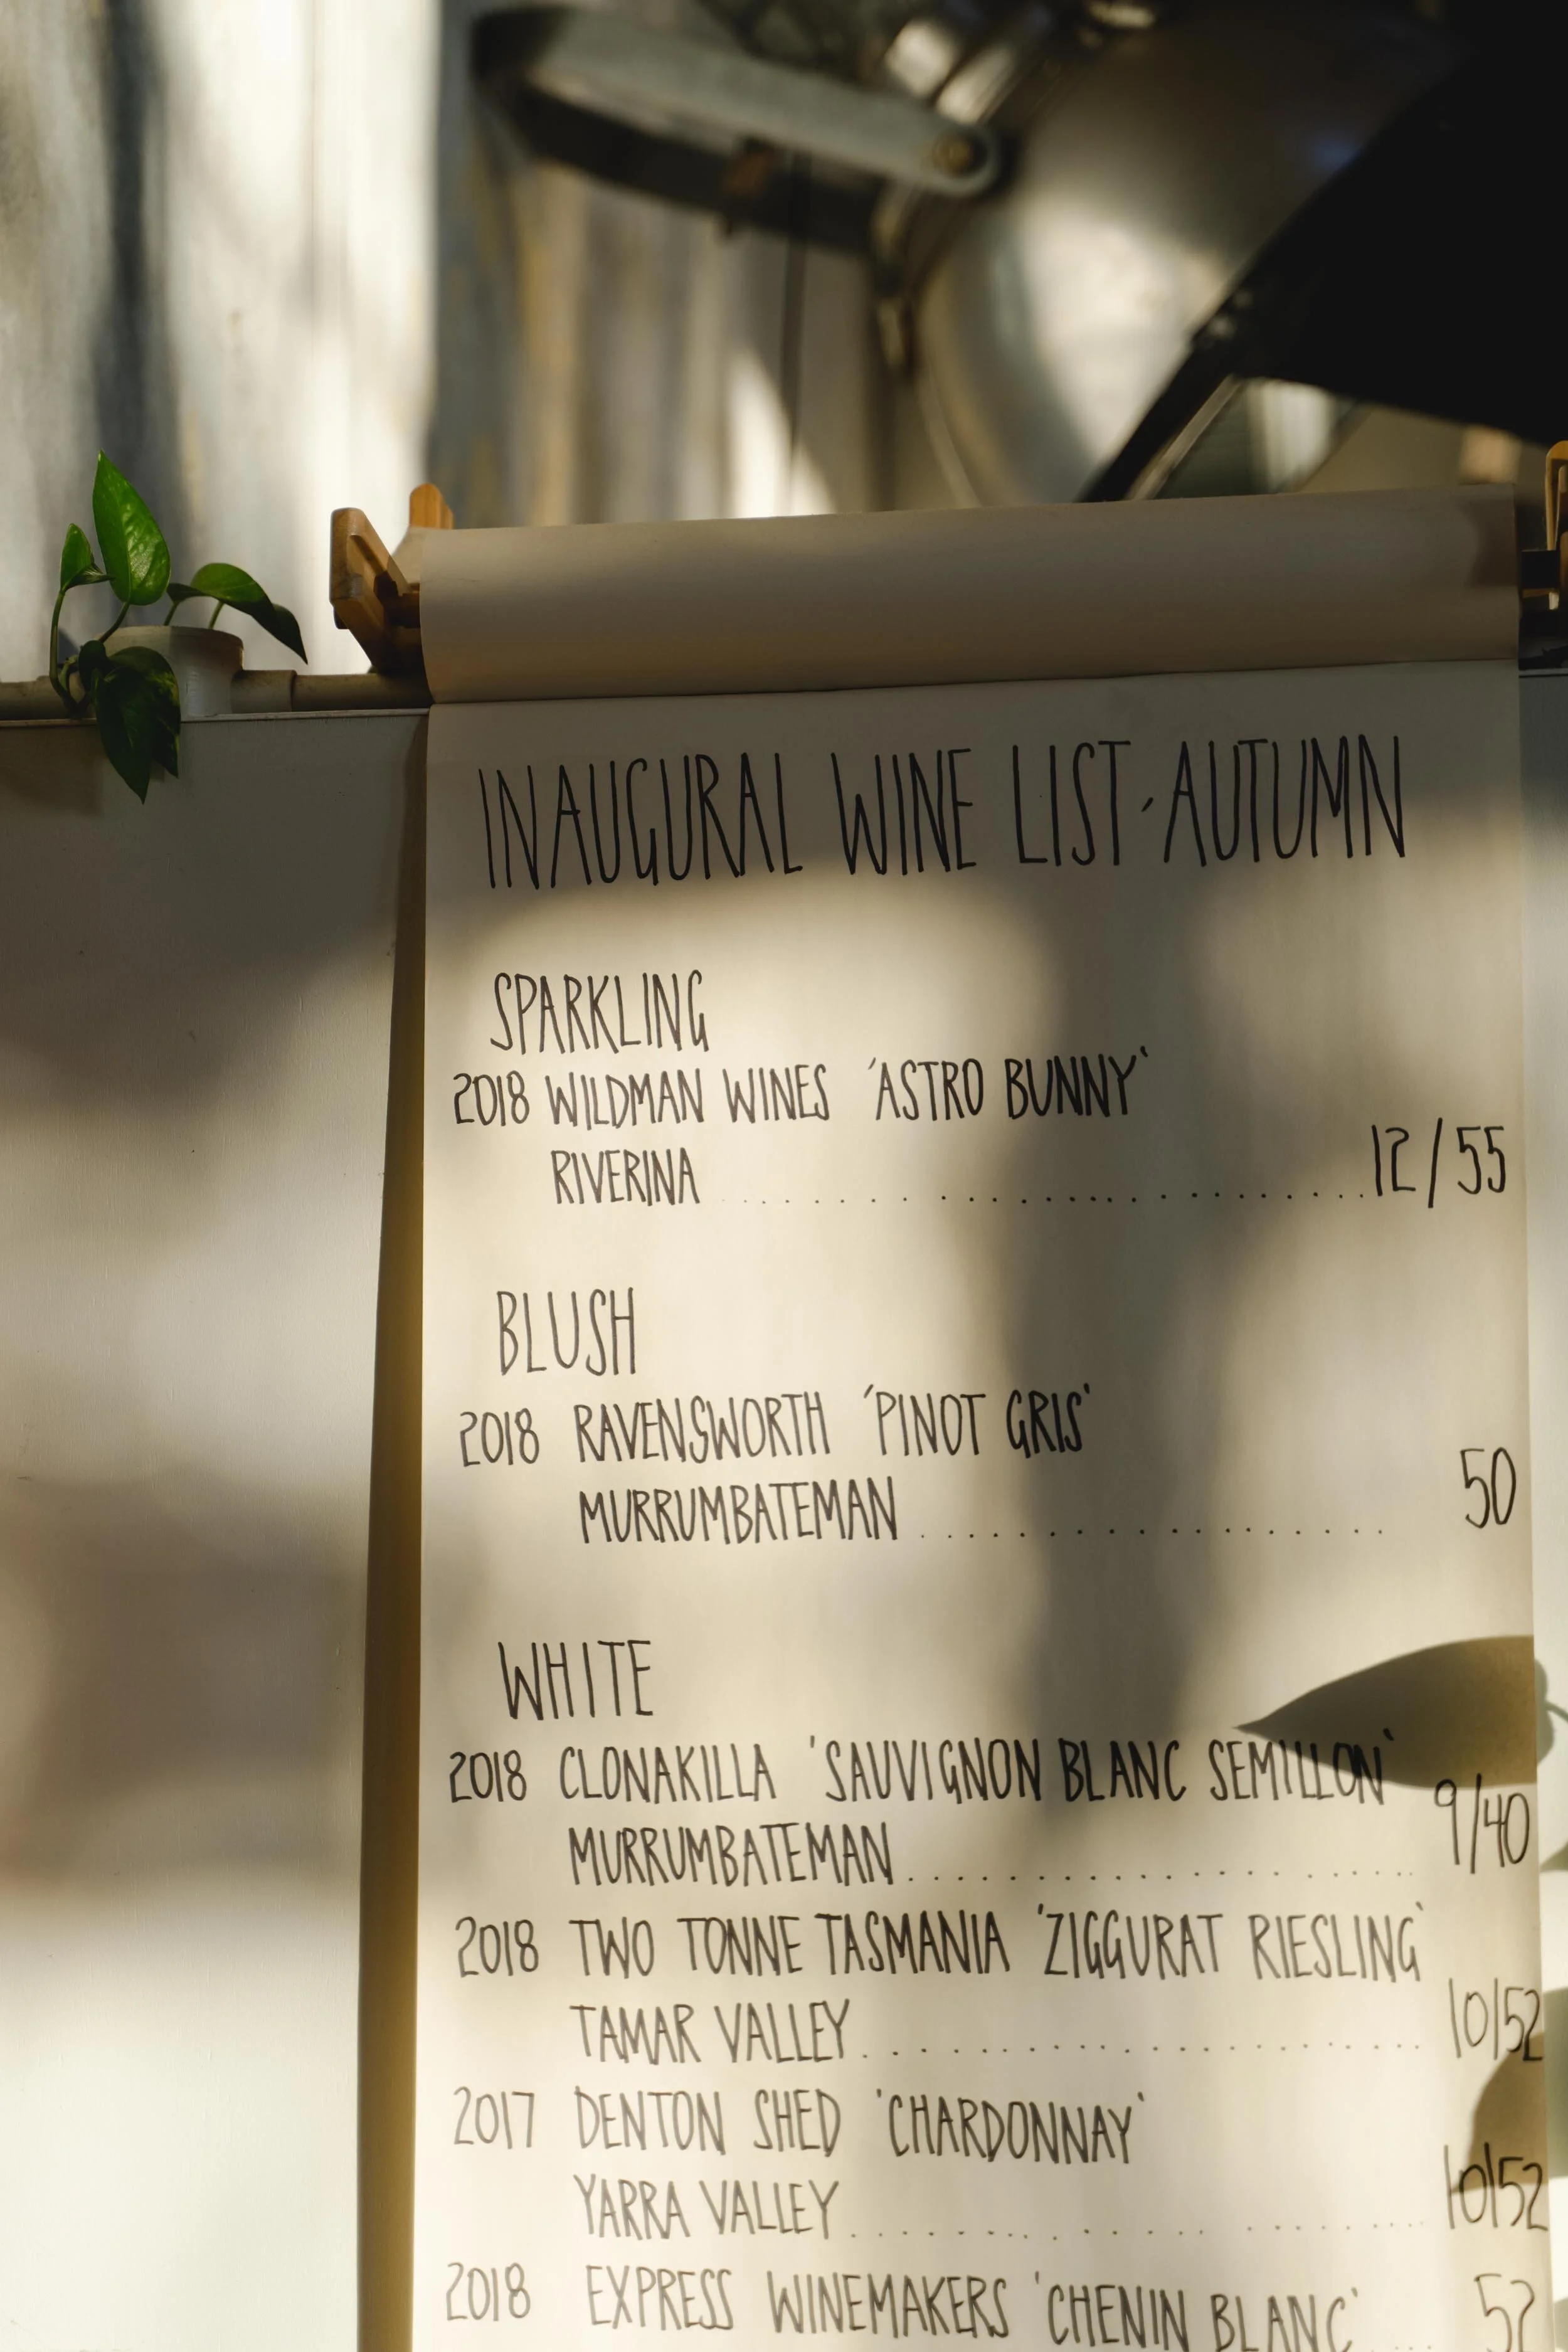 INAUGURAL WINE LIST · AUTUMN
SPARKLING
2018 WILDMAN WINES 'ASTRO BUNNY'
RIVERINA ........................ 12/55
BLUSH
2018 RAVENSWORTH 'PINOT GRIS'
MURRUMBATEMAN .................. 50
WHITE
2018 CLONAKILLA 'SAUVIGNON BLANC SEMILLON'
MURRUMBATEMAN .................. 9/40
2018 TWO TONNE TASMANIA 'ZIGGURAT RIESLING'
TAMAR VALLEY .................... 10/52
2017 DENTON SHED 'CHARDONNAY'
YARRA VALLEY .................... 10/52
2018 EXPRESS WINEMAKERS 'CHENIN BLANC' .... 52